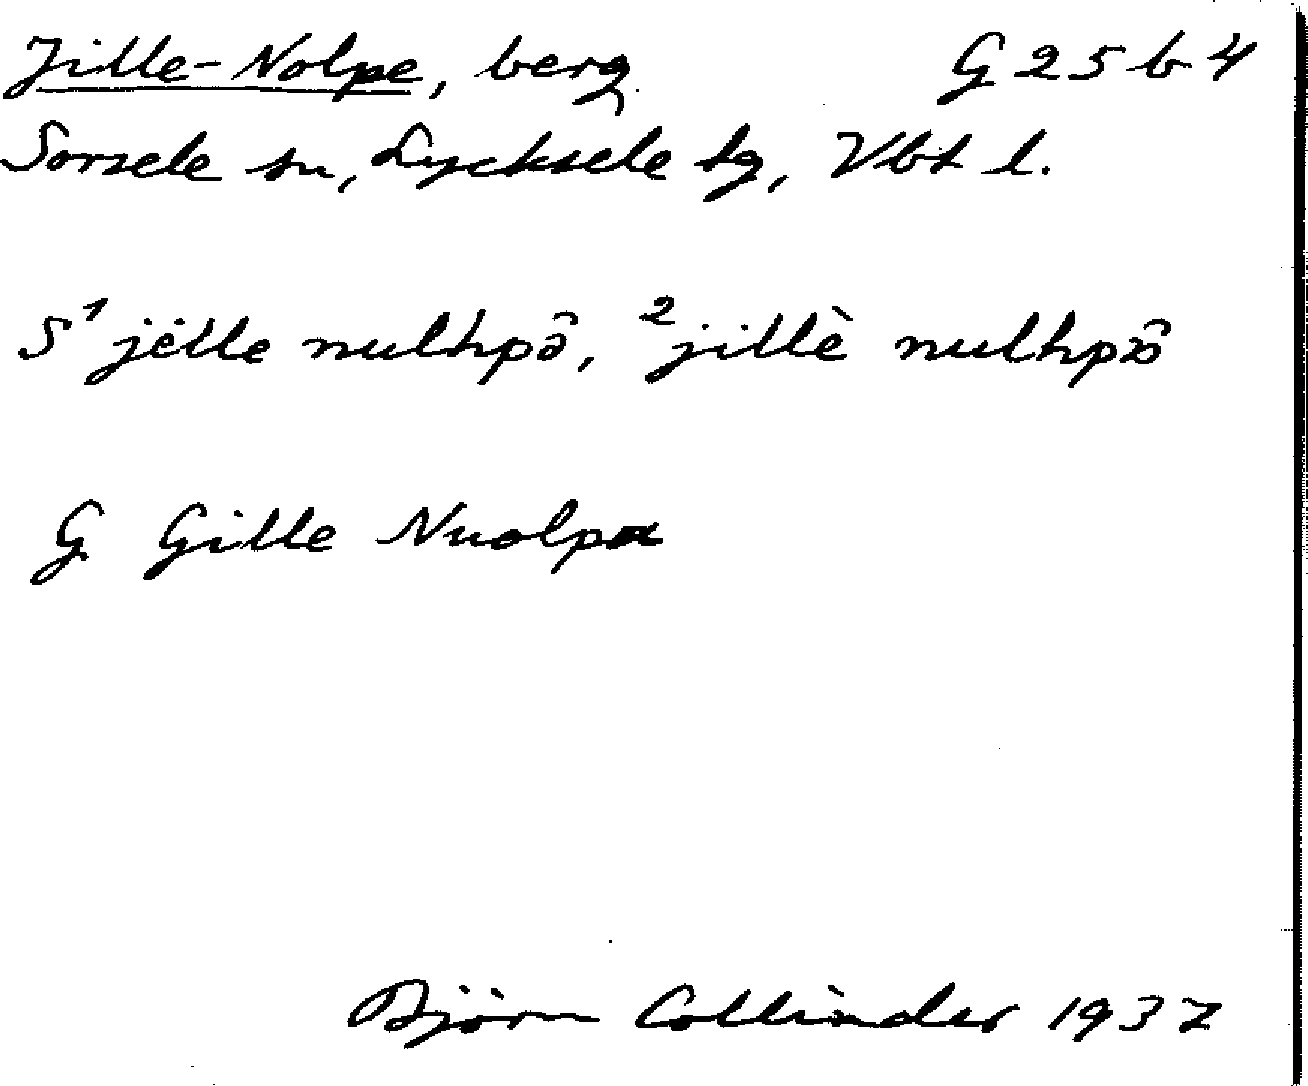 Jille-Nolpe, berg G 25 b 4
Sorsele sn, Lycksele tg, Vbt l.
S ¹jëlle nulhpə̑, ²jillè nulhpɔ̑
G Gille Nuolpa
Björn Collinder 1937